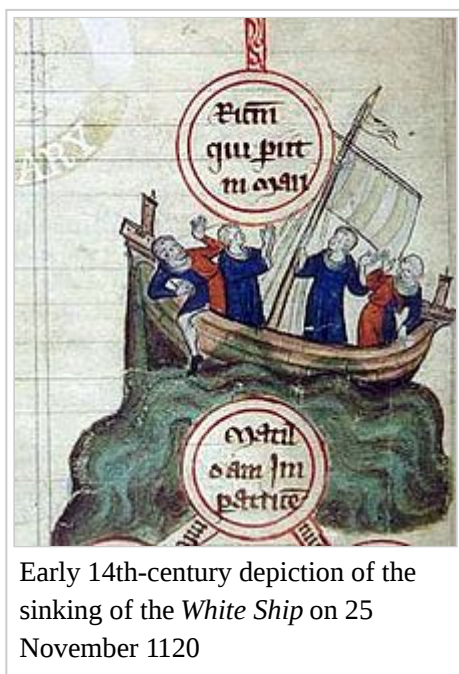 ARY
qui
in mari
Matil
dam Im
Early 14th-century depiction of the
sinking of the White Ship on 25
November 1120